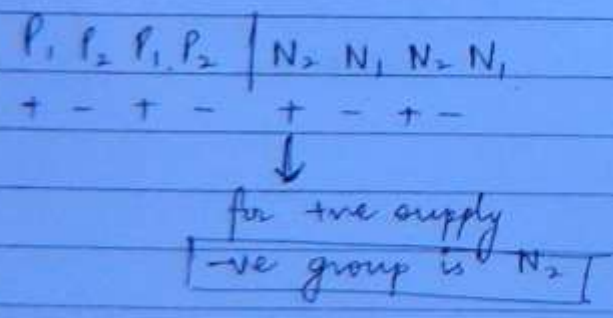 P₁ P₂ P₁ P₂ | N₂ N₁ N₂ N₁
+ - + - + - + -
↓
for +ve supply
-ve group is N₂